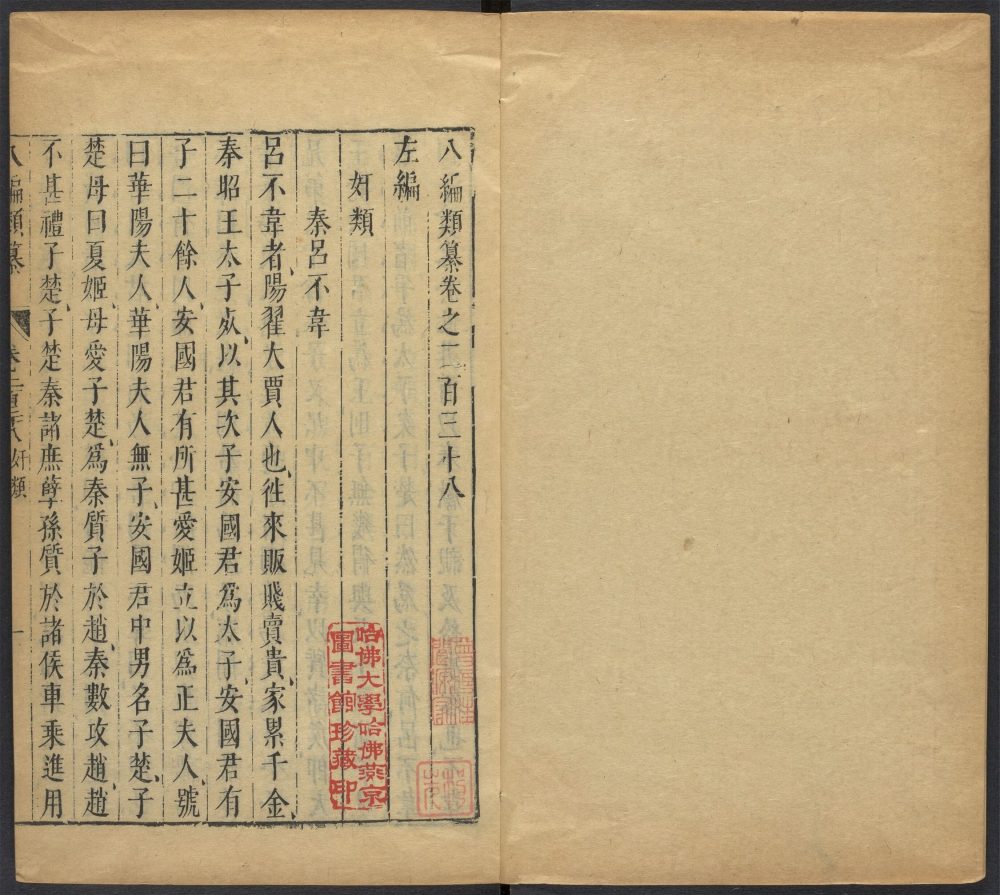 八編類纂卷之二百三十八
左編
奸類
秦呂不韋
呂不韋者陽翟大賈人也徃來販賤賣貴家累千金
秦昭王太子死以其次子安國君爲太子安國君有
子二十餘人安國君有所甚愛姬立以爲正夫人號
曰華陽夫人華陽夫人無子安國君中男名子楚子
楚母曰夏姬母愛子楚爲秦質子於趙秦數攻趙趙
不甚禮子楚子楚秦諸庶孽孫質於諸侯車乘進用
八編類纂
奸類
一
哈佛大學哈佛燕京
圖書館珍藏印